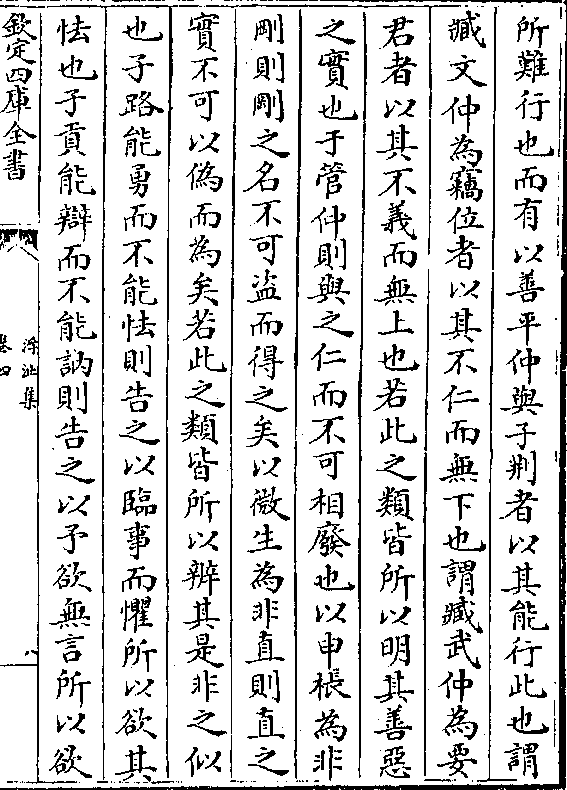 所難行也而有以善平仲與子荆者以其能行此也謂
臧文仲為竊位者以其不仁而無下也謂臧武仲為要
君者以其不義而無上也若此之類皆所以明其善惡
之實也于管仲則與之仁而不可相廢也以申棖為非
剛則剛之名不可盗而得之矣以微生為非直則直之
實不可以偽而為矣若此之類皆所以辨其是非之似
也子路能勇而不能怯則告之以臨事而懼所以欲其
怯也子貢能辯而不能訥則告之以予欲無言所以欲
欽定四庫全書
浮沚集
卷四
八